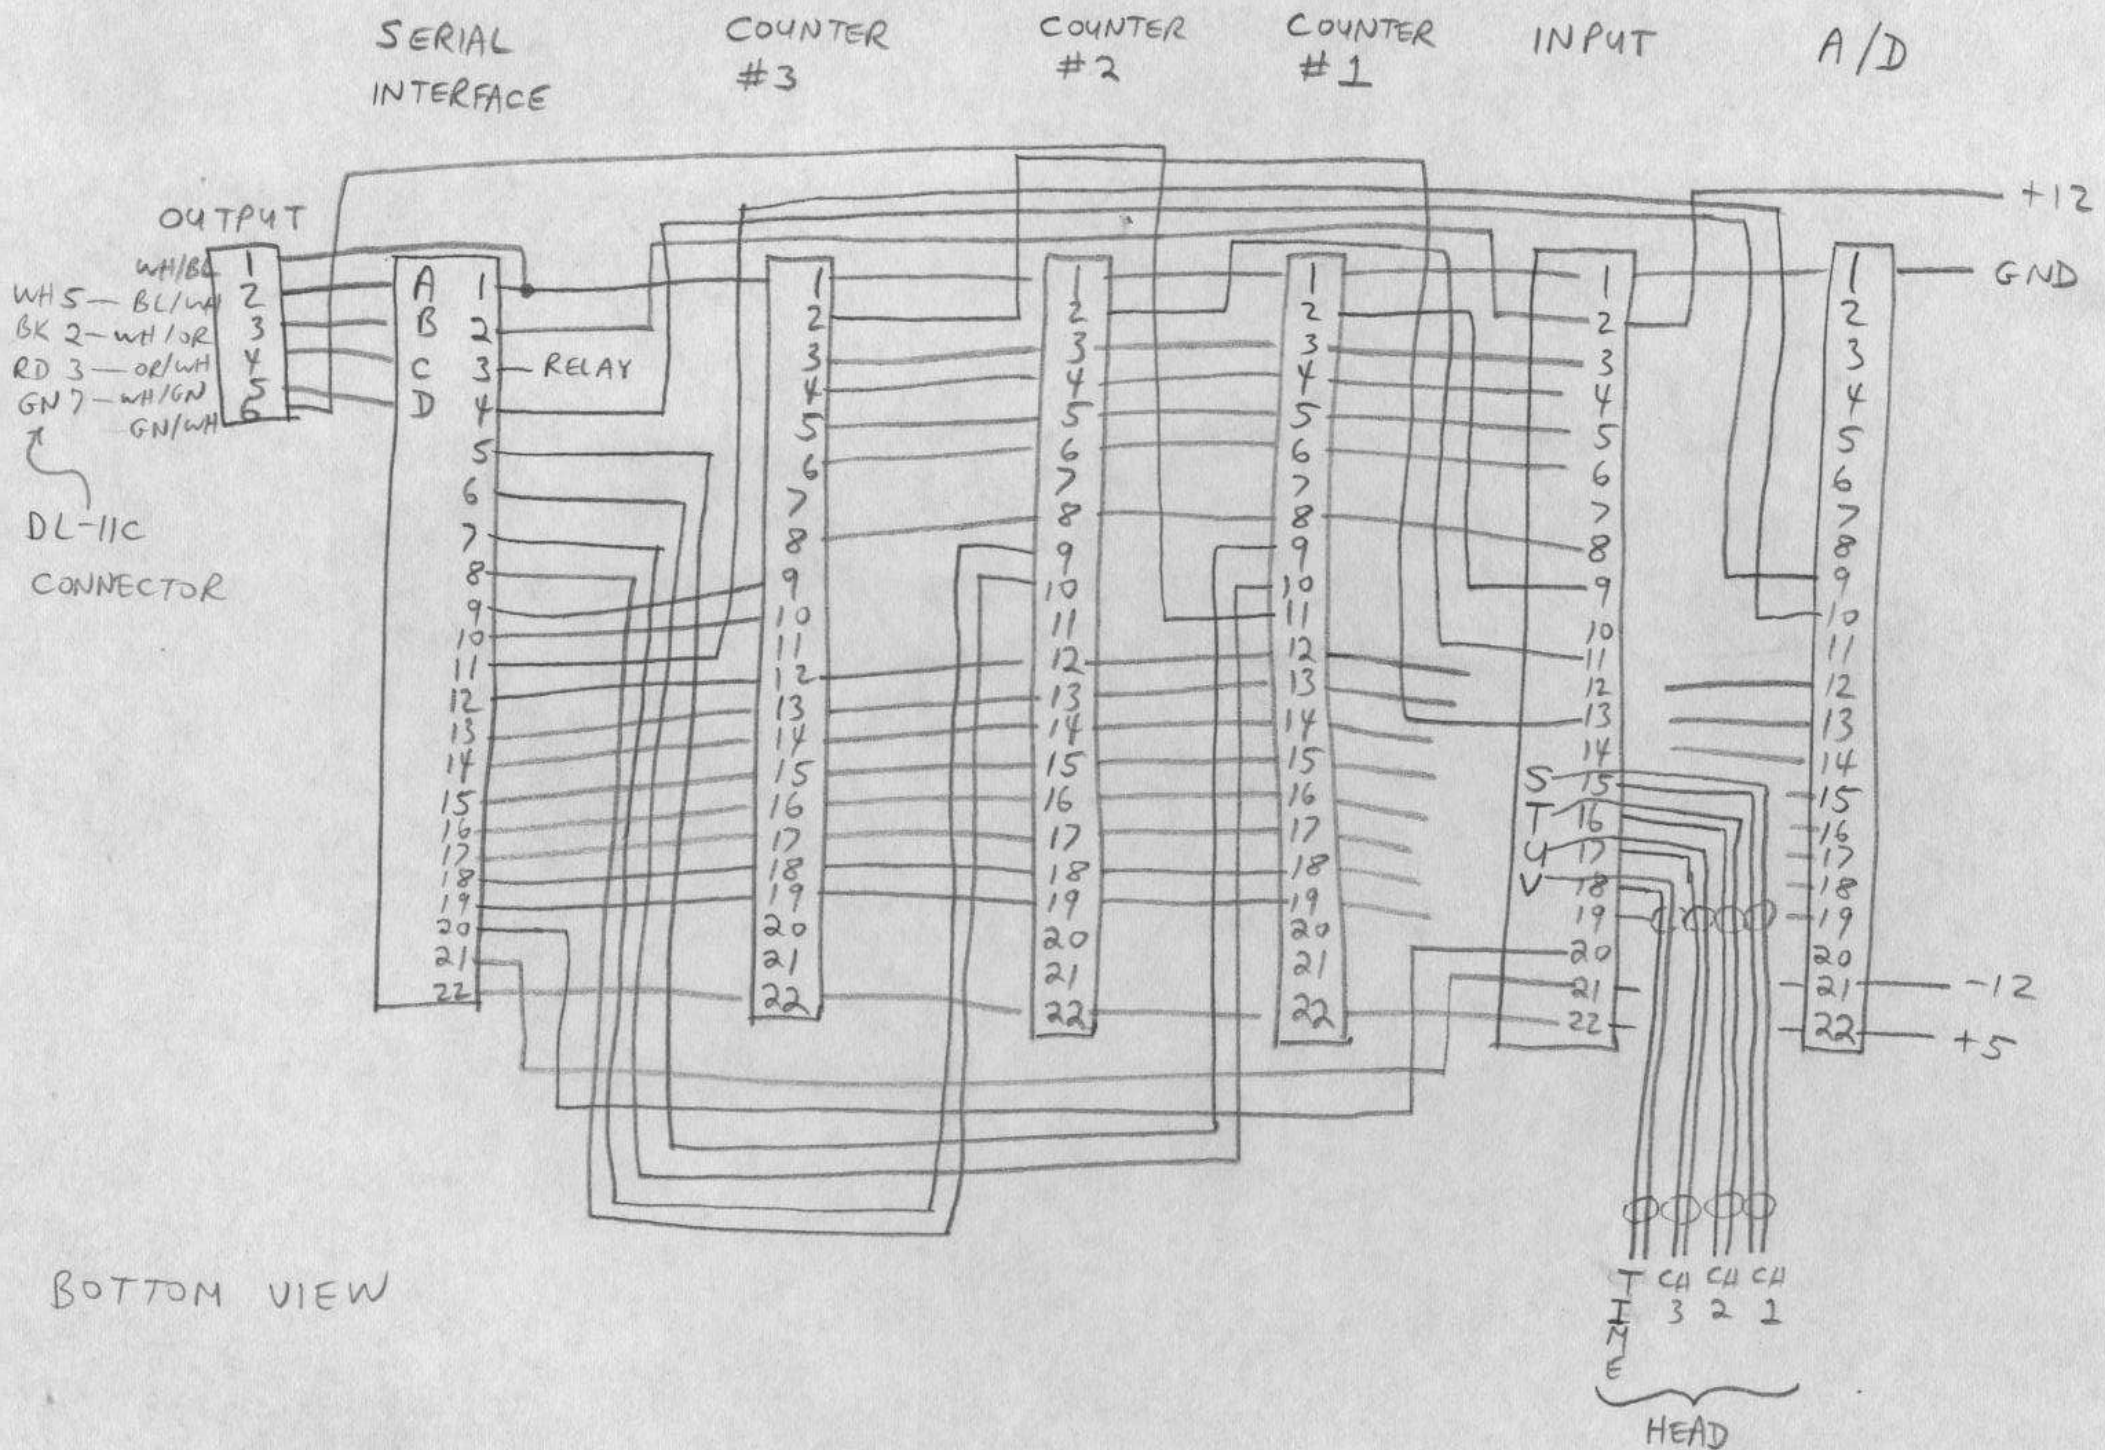 SERIAL
INTERFACE
COUNTER
#3
COUNTER
#2
COUNTER
#1
INPUT
A/D
+12
GND
OUTPUT
WH/BL 1
WH 5 — BL/WH 2
BK 2 — WH/OR 3
RD 3 — OR/WH 4
GN 7 — WH/GN 5
GN/WH 6
DL-11C
CONNECTOR
A 1
B 2
C 3 — RELAY
D 4
5
6
7
8
9
10
11
12
13
14
15
16
17
18
19
20
21
22
1
2
3
4
5
6
7
8
9
10
11
12
13
14
15
16
17
18
19
20
21
22
1
2
3
4
5
6
7
8
9
10
11
12
13
14
15
16
17
18
19
20
21
22
1
2
3
4
5
6
7
8
9
10
11
12
13
14
15
16
17
18
19
20
21
22
1
2
3
4
5
6
7
8
9
10
11
12
13
14
S 15
T 16
U 17
V 18
19
20
21
22
1
2
3
4
5
6
7
8
9
10
11
12
13
14
15
16
17
18
19
20
21
22
-12
+5
TIME
CH 3
CH 2
CH 1
HEAD
BOTTOM VIEW